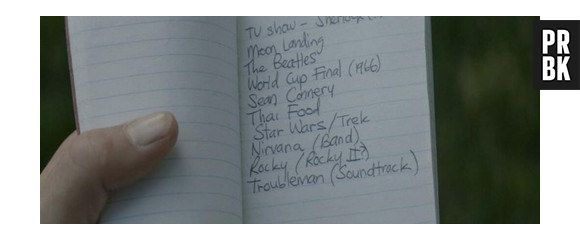 TV show - Sherlock
Moon Landing
The Beatles
World Cup Final (1966)
Sean Connery
Thai Food
Star Wars/Trek
Nirvana (Band)
Rocky (Rocky II?)
Troubleman (Soundtrack)
PR
BK